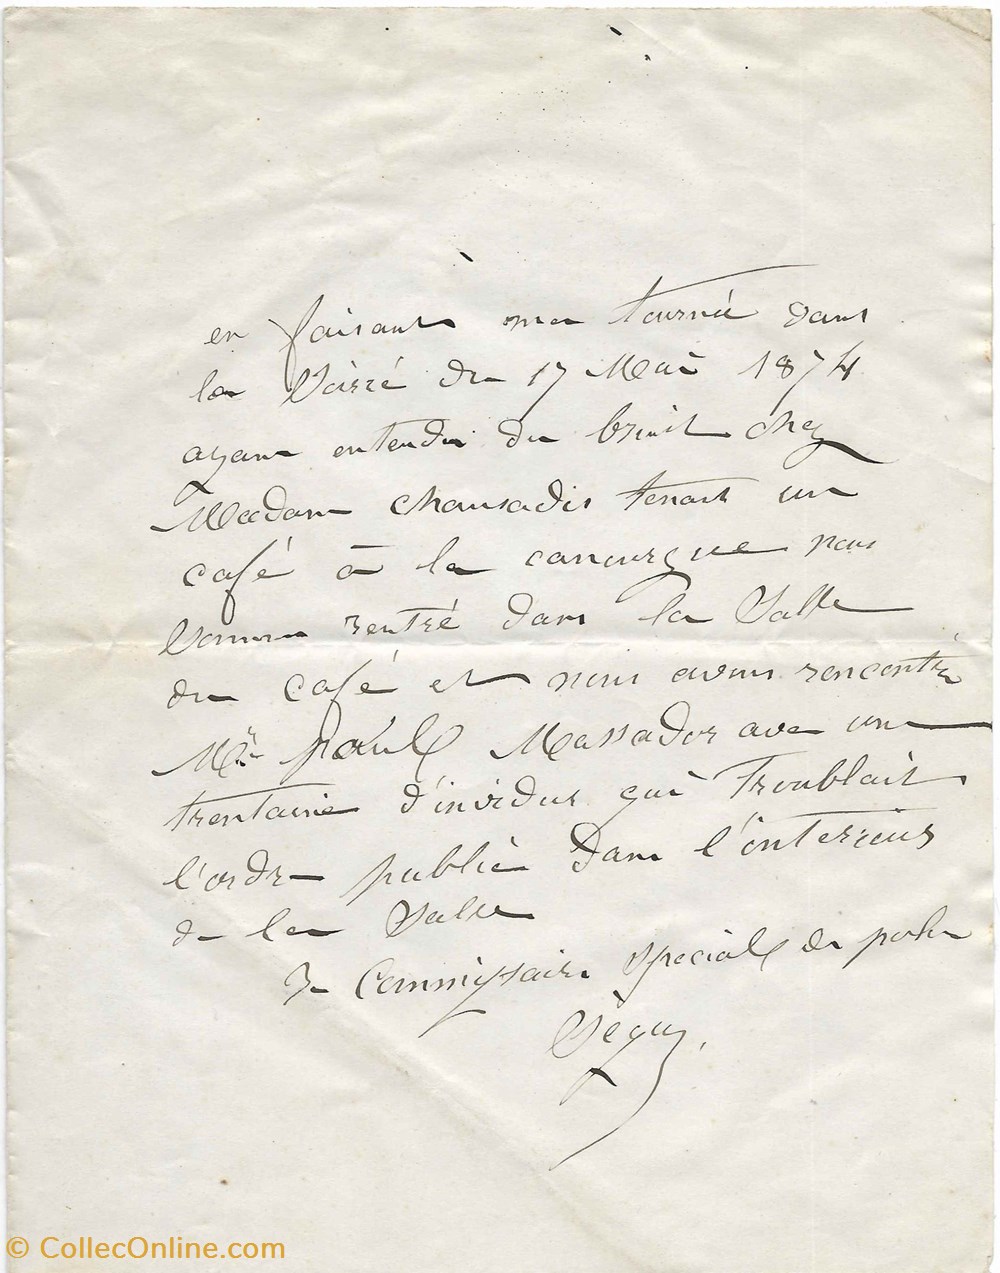 en faisant ma tourné dans
la Soirré du 17 Mai 1874
ayant entendu du bruit chez
Madam chausadis tenant un
café à la canourgue nous
Somme rentré dans la Salle
du café et nous avons rencontré
Mr paul Massador avec une
trentaine d'invidus qui Troublait
l'ordre public Dans l'interieur
de la Salle
Commissaire Special de police
Séguy
© CollecOnline.com